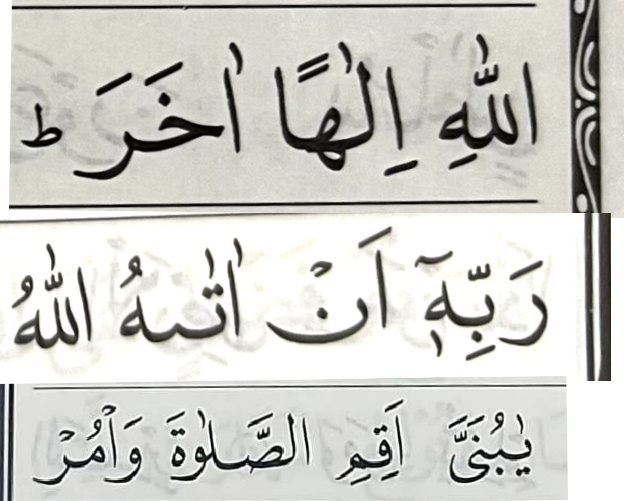 اللّٰهِ اِلٰهًا اٰخَرَ ط
رَبِّهٖٓ اَنْ اٰتٰىهُ اللّٰهُ
يٰبُنَيَّ اَقِمِ الصَّلٰوةَ وَاْمُرْ